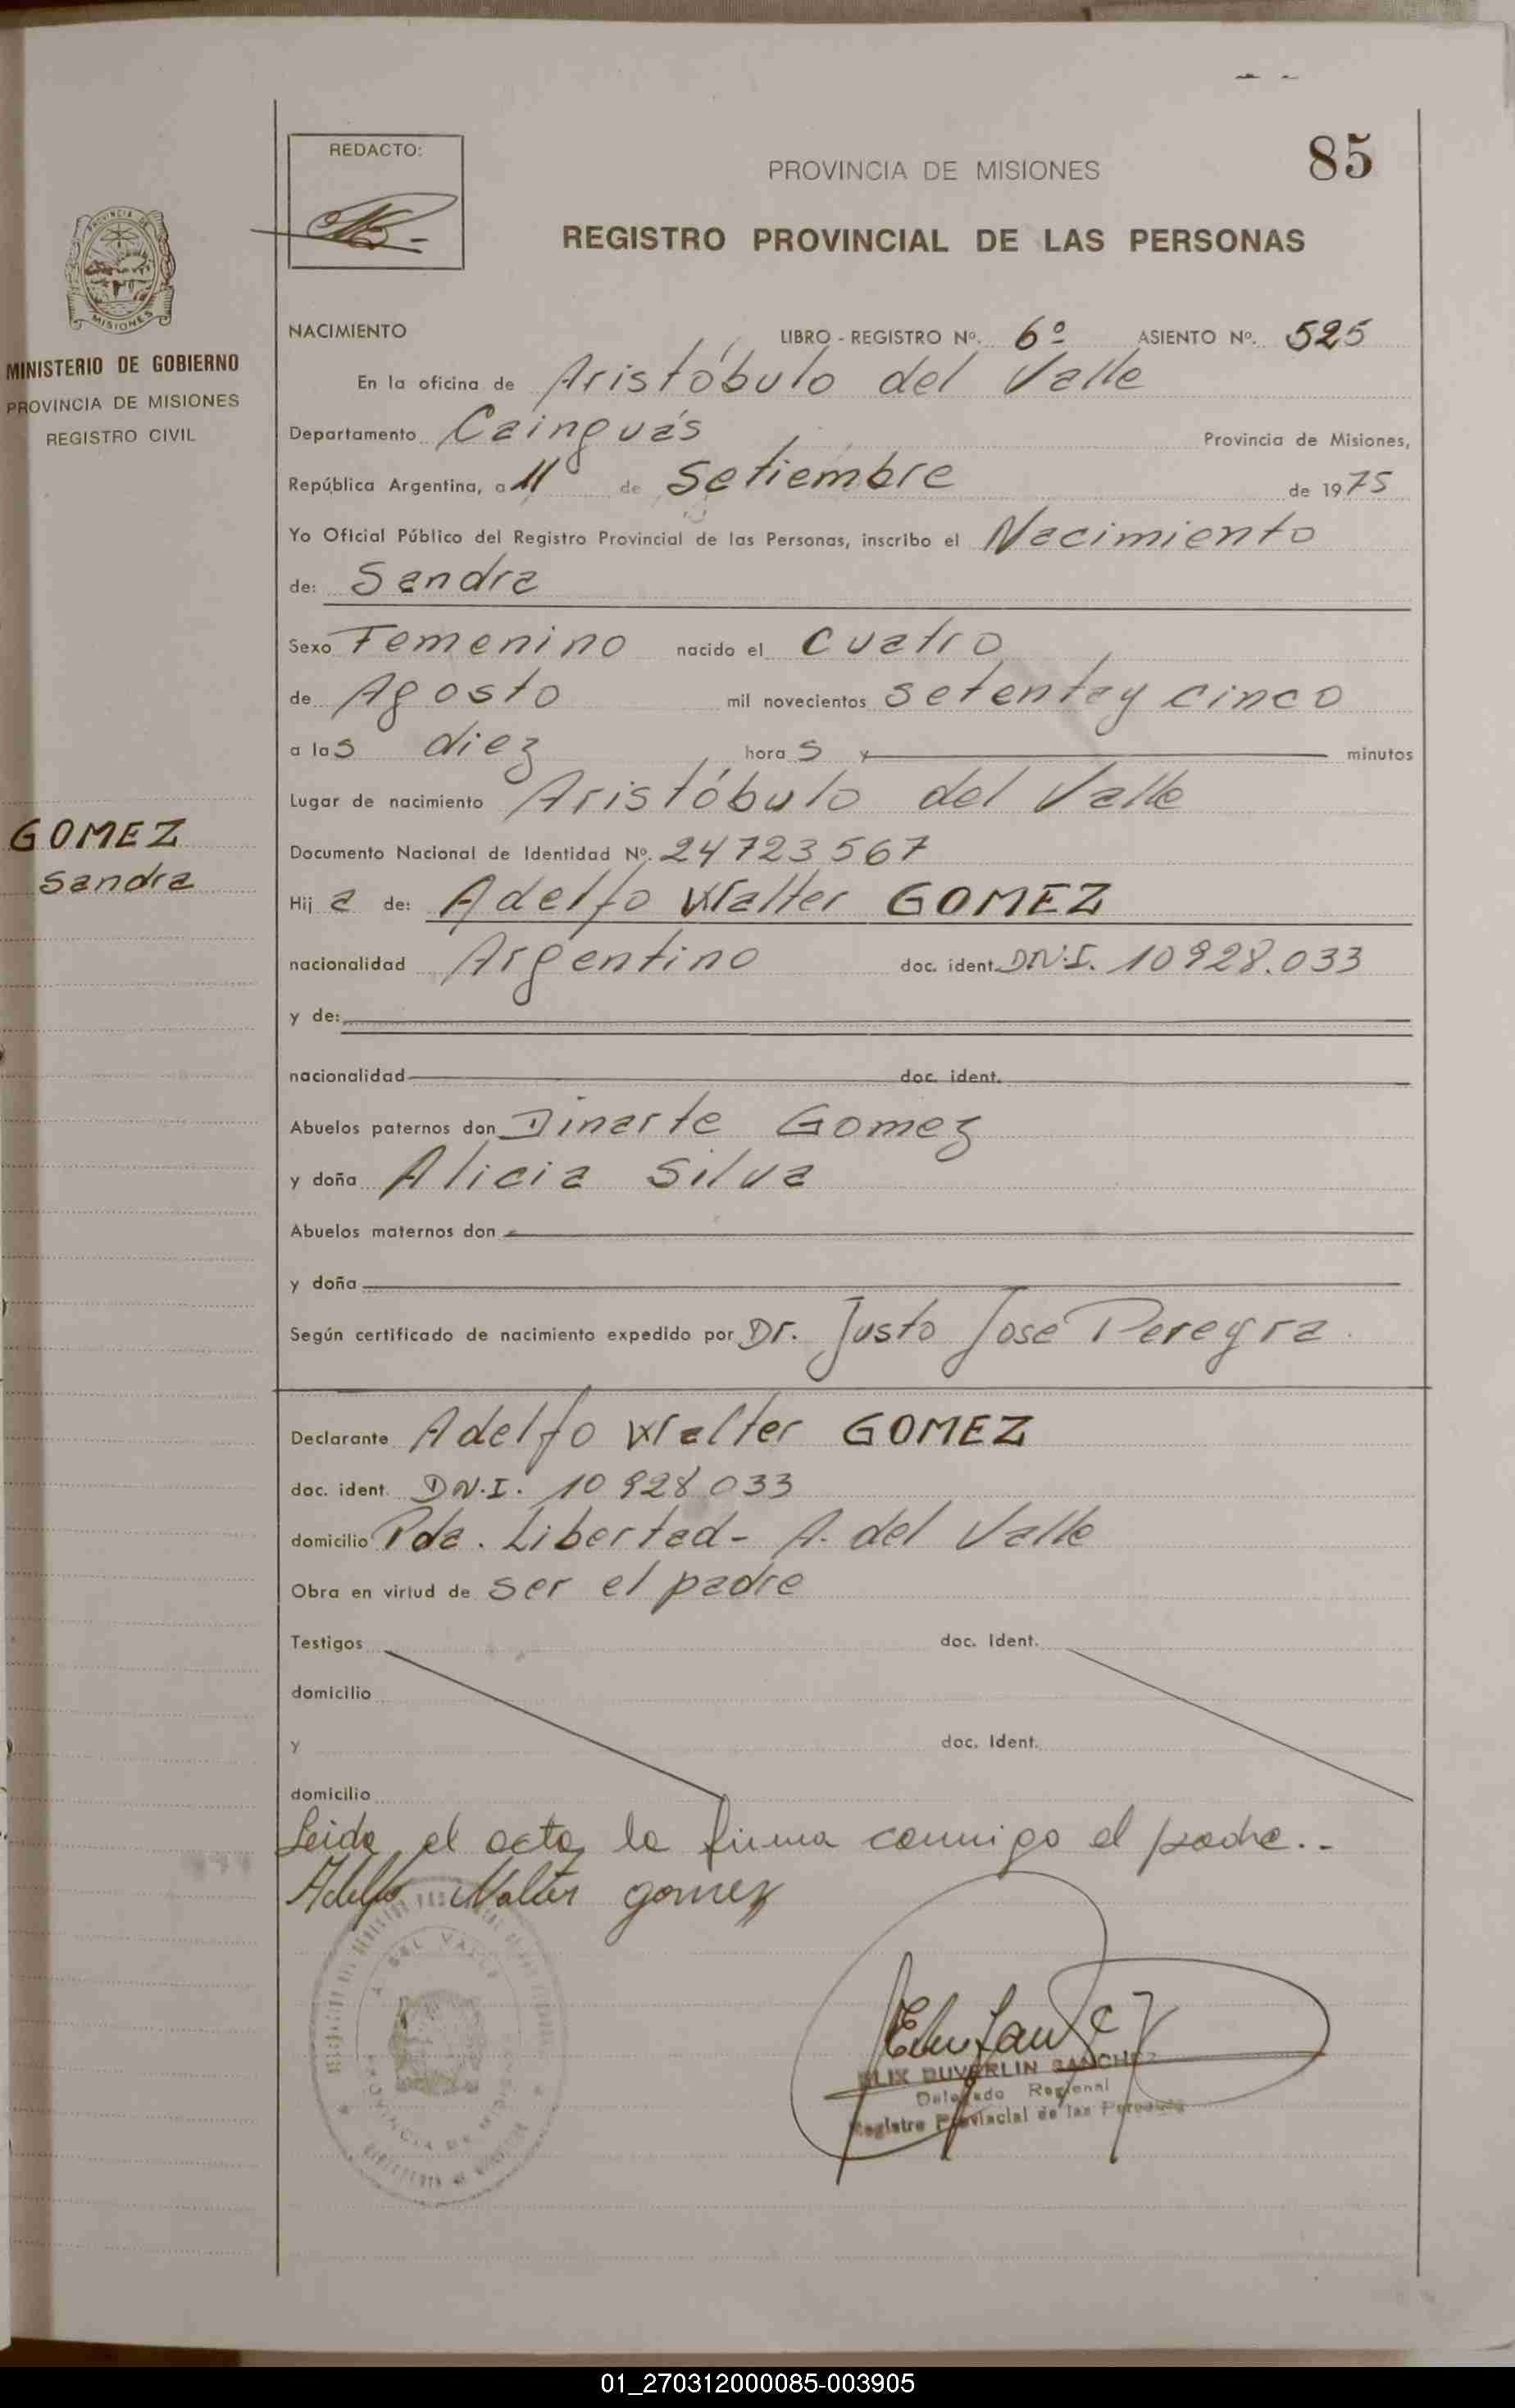 85
REDACTO:
PROVINCIA DE MISIONES
REGISTRO PROVINCIAL DE LAS PERSONAS
MISIONES
MINISTERIO DE GOBIERNO
PROVINCIA DE MISIONES
REGISTRO CIVIL
NACIMIENTO LIBRO - REGISTRO Nº. 6º ASIENTO Nº. 525
En la oficina de Aristóbulo del Valle
Departamento Cainguás Provincia de Misiones,
República Argentina, a 11 de Setiembre de 1975
Yo Oficial Público del Registro Provincial de las Personas, inscribo el Nacimiento
de: Sandra
Sexo Femenino nacido el cuatro
de Agosto mil novecientos setentay cinco
a las diez horas y minutos
Lugar de nacimiento Aristóbulo del Valle
GOMEZ
Sandra
Documento Nacional de Identidad Nº. 24723567
Hija de: Adelfo Walter GOMEZ
nacionalidad Argentino doc. ident. D.N.I. 10928.033
y de:
nacionalidad doc. ident.
Abuelos paternos don Dinarte Gomez
y doña Alicia Silva
Abuelos maternos don
y doña
Según certificado de nacimiento expedido por Dr. Justo José Pereyra
Declarante Adelfo Walter GOMEZ
doc. ident. D.N.I. 10928033
domicilio Pda. Libertad - A. del Valle
Obra en virtud de ser el padre
Testigos doc. Ident.
domicilio
y doc. Ident.
domicilio
Leida el acta, la firma conmigo el padre..
Adelfo Walter gomez
A. DEL VALLE
PROVINCIA DE MISIONES
ELIX DUVERLIN SANCHEZ
Delegado Regional
Registro Provincial de las Personas
01_270312000085-003905